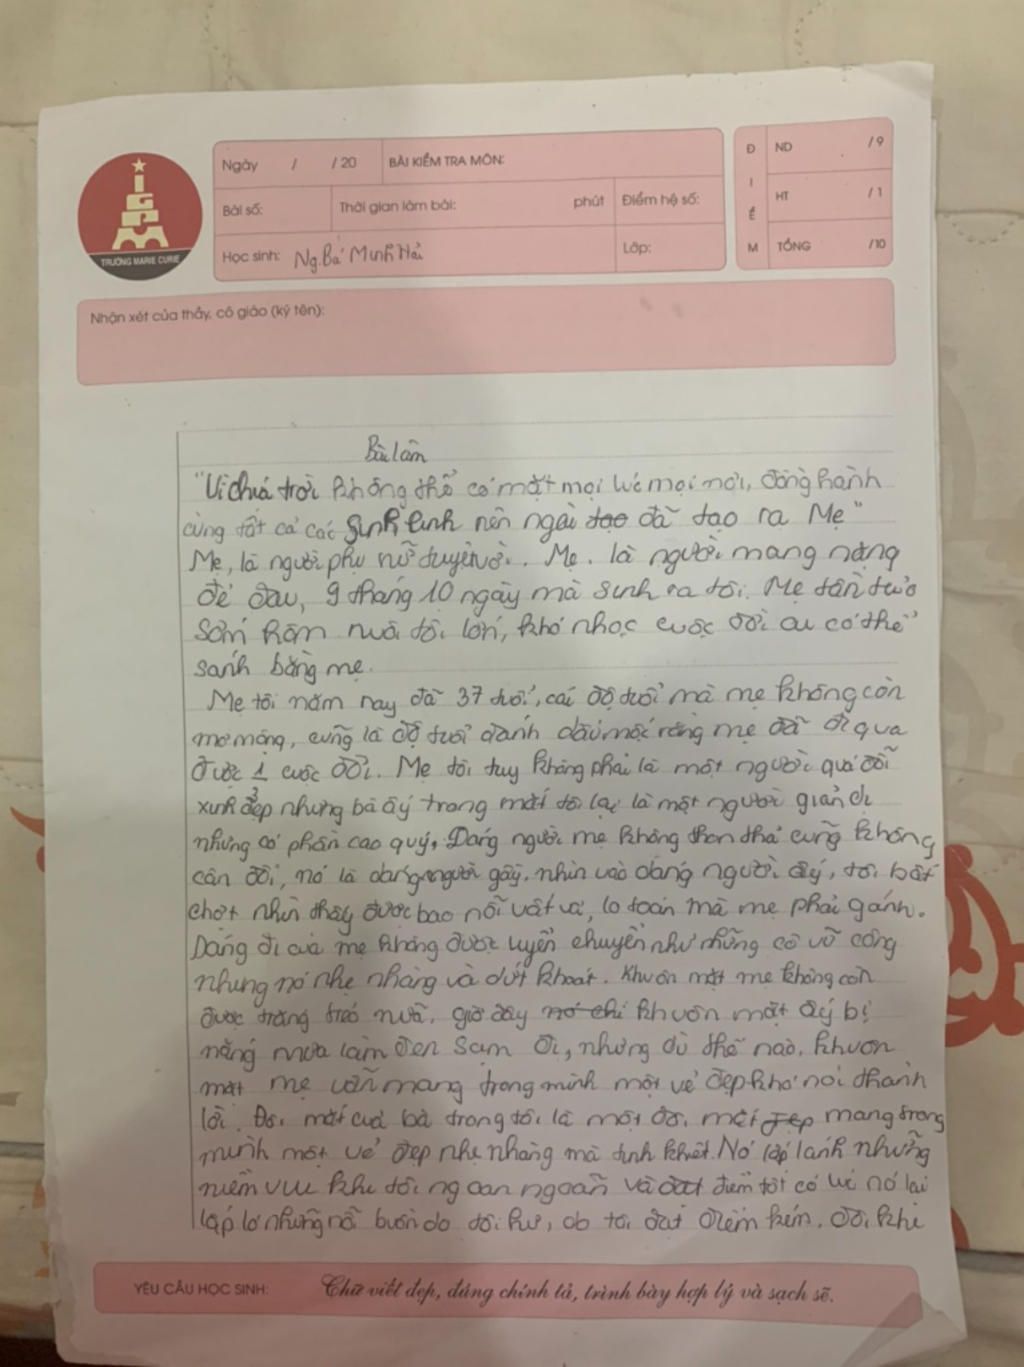 TRƯỜNG MARIE CURIE
Ngày / / 20 BÀI KIỂM TRA MÔN:
Bài số: Thời gian làm bài: phút Điểm hệ số:
Học sinh: Ng.Bá Minh Hải Lớp:
ĐIỂM
ND /9
HT /1
TỔNG /10
Nhận xét của thầy, cô giáo (ký tên):
Bài làm
"Vì chúa trời không thể có mặt mọi lúc mọi nơi, đồng hành
cùng tất cả các sinh linh nên ngài tạo đã tạo ra Mẹ"
Mẹ, là người phụ nữ tuyệt vời. Mẹ, là người mang nặng
đẻ đau, 9 tháng 10 ngày mà sinh ra tôi. Mẹ tần tảo
sớm hôm nuôi tôi lớn, khó nhọc cuộc đời ai có thể
sánh bằng mẹ.
Mẹ tôi năm nay đã 37 tuổi, cái độ tuổi mà mẹ không còn
mơ mộng, cũng là độ tuổi đánh dấu mốc rằng mẹ đã đi qua
được 1/3 cuộc đời. Mẹ tôi tuy không phải là một người quá đỗi
xinh đẹp nhưng bà ấy trong mắt tôi lại là một người giản dị
nhưng có phần cao quý. Dáng người mẹ không thon thả cũng không
cân đối, nó là dáng người gầy, nhìn vào dáng người ấy, tôi bất
chợt nhìn thấy được bao nỗi vất vả, lo toan mà mẹ phải gánh.
Dáng đi của mẹ không được uyển chuyển như những cô vũ công
nhưng nó nhẹ nhàng và dứt khoát. Khuôn mặt mẹ không còn
được trắng trẻo nữa, giờ đây nó chỉ khuôn mặt ấy bị
nắng mưa làm đen sạm đi, nhưng dù thế nào, khuôn
mặt mẹ vẫn mang trong mình một vẻ đẹp khó nói thành
lời. Đôi mắt của bà trong tôi là một đôi mắt đẹp mang trong
mình một vẻ đẹp nhẹ nhàng mà tinh khiết. Nó lấp lánh những
niềm vui khi tôi ngoan ngoãn và đạt điểm tốt có lúc nó lại
lấp ló những nỗi buồn do tôi hư, do tôi đạt điểm kém. Đôi khi
YÊU CẦU HỌC SINH: Chữ viết đẹp, đúng chính tả, trình bày hợp lý và sạch sẽ.